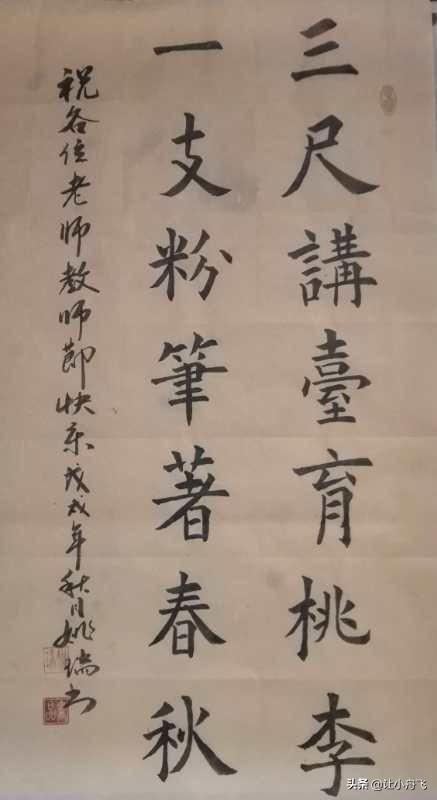 三尺講臺育桃李
一支粉筆著春秋
祝各位老师教师節快乐戊戌年秋月姚瑞书
头条 @让小舟飞